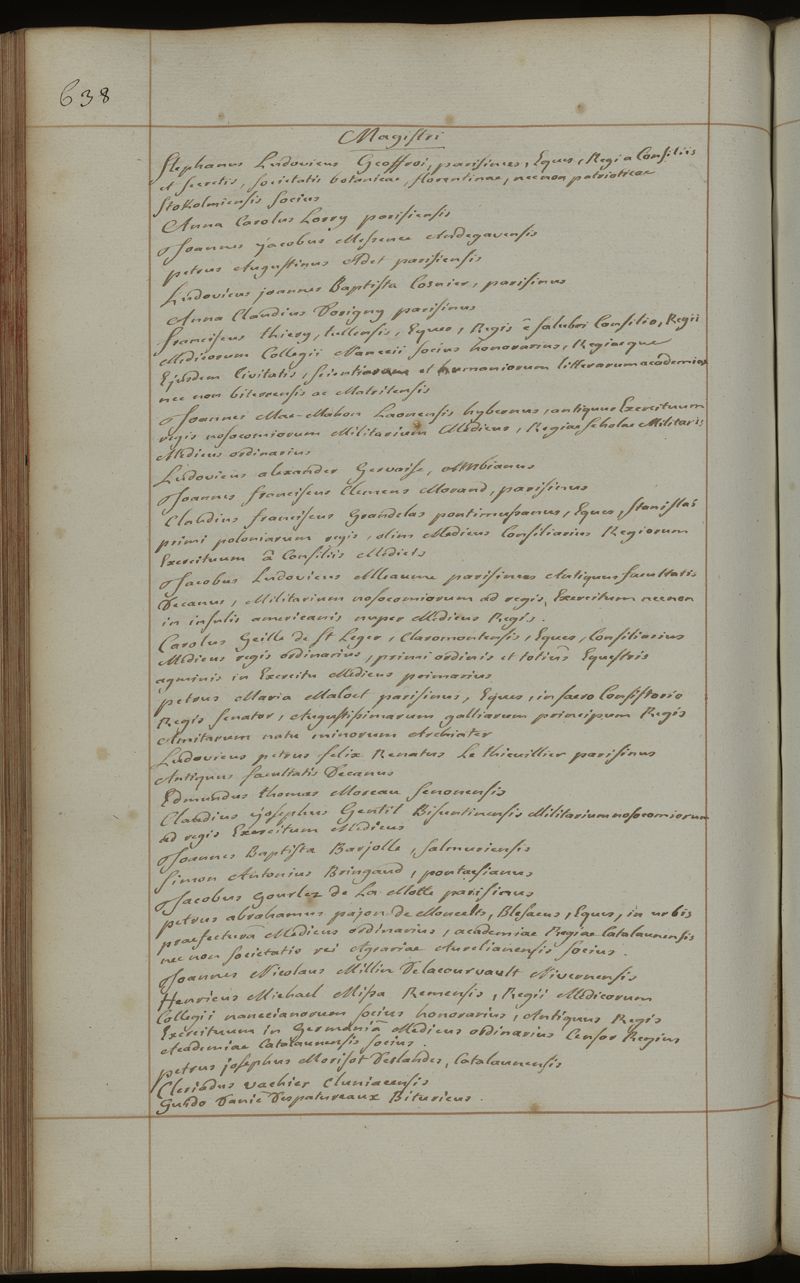 638
Magistri
Stephanus Ludovicus Geoffroi, parisinus, Eques, Regi a Consiliis
et secretis, societatis botanicae, florentinae, necnon patrioticae
Stokolmiensis socius
Anna Carolus Lorry parisiensis
Joannes jacobus Messence Andegavensis
petrus Augustinus Adet parisiensis
Ludovicus joannes Baptista Cosnier, parisinus
Anna Claudius Dorigny parisinus
franciscus thiery, tullensis, Eques, Regis è salubri Consilio, Regii
Medicorum Collegii Nanceii socius honorarius, Regiaeque
Ejusdem Civitatis, scientiarum et humaniorum litterarum academiae
nec non biterrensis ac Matritensis
Joannes Mac-Mahon Laonensis hybernus, antiquus Exercituum
regis nosocomiorum Militarium Medicus, Regiae scholae Militaris
Medicus ordinarius
Ludovicus alexander Gervaise, Ambianus
Joannes franciscus Clemens Morand, parisinus
Claudius franciscus Grandclas pontimussanus, Eques, stanislai
primi poloniarum regis, olim Medicus Consiliarius Regiorum
Exercituum à Consiliis Medicis
Jacobus Ludovicus Alleaume parisinus Antiquus facultatis
Decanus, Militarium nosocomiorum ad regis Exercitum necnon
in insulis americanis nuper Medicus Regis.
Carolus Geille de St Leger, Claromontensis, Eques, Consiliarius
Medicus regis ordinarius, primi ordinis et totius Equestris
agminis in Exercitu Medicus primarius
petrus Maria Maloet parisinus, Eques, in sacro Consistorio
Regis senator, Augustissimarum galliarum principum Regis
Amitarum natu minorum Archiater
Ludovicus petrus felix Renatus Le thieullier parisinus
Antiquus facultatis Decanus
Edmundus thomas Moreau senonensis
Claudius josephus Gentil Bisuntinensis Militarium nosocomiorum
ad regis Exercitum Medicus
Joannes Baptista Barjolle, salmuriensis
Simon Antonius Bringaud, pontaesianus
Jacobus Gourlez de La Motte parisinus
petrus abrahamus pajon de Moncets, Blesaeus, Eques, in urbis
praefectura Medicus ordinarius, academiae Regiae Catalaunensis
nec non societatis rei Agrariae Aurelianensis socius.
Joannes Nicolaus Millin Delacourvault Nivernensis
Henricus Michael Missa Remensis, Regii Medicorum
Collegii nanceianorum socius honorarius, Antiquus Regis
Exercituum in Germaniâ Medicus ordinarius Censor Regius
Academiae Catalaunensis socius.
petrus josephus Morisot Deslandes, Catalaunensis
Cleriadus vachier Cluniacensis
Guido Danie Despatureaux Bituricus.